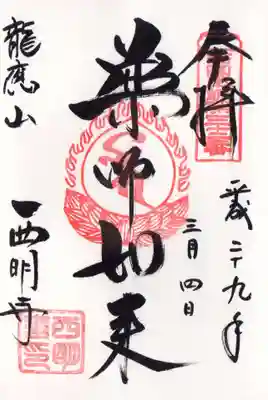 奉拝
平成二十九年
三月四日
薬師如来
龍應山
西明寺